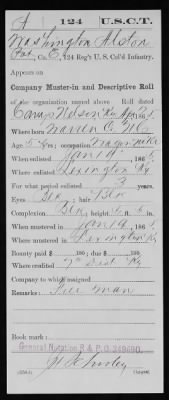 A | 124 | U.S.C.T.
Washington Alston
Pvt, Co. E, 124 Reg't U. S. Col'd Infantry.
Appears on
Company Muster-in and Descriptive Roll
of the organization named above. Roll dated
Camp Nelson Ky
Where born Warren C NC
Age years; occupation
When enlisted Jan 19, 1865
Where enlisted Lexington Ky
For what period enlisted 3 years.
Eyes Blk; hair Blk
Complexion Blk; height ft. in.
When mustered in Jan 19, 1865
Where mustered in Lexington Ky
Bounty paid $ 100; due $ 100
Where credited 7th Dist Ky
Company to which assigned
Remarks: Free man
Book mark:
General Notation R & P O
Copyist.